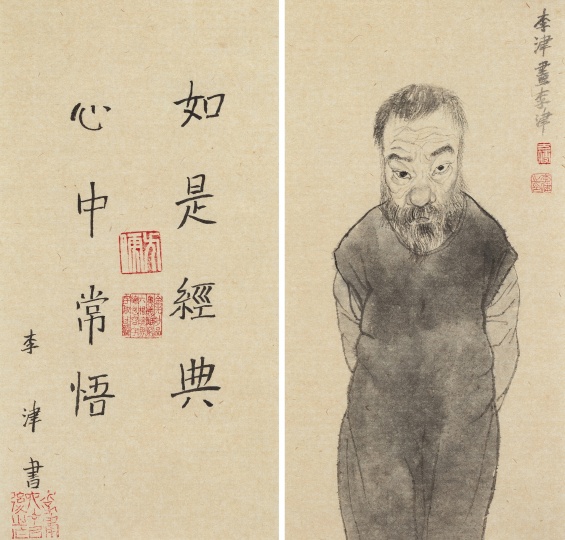 如是經典
心中常悟
李津書
李津畫李津